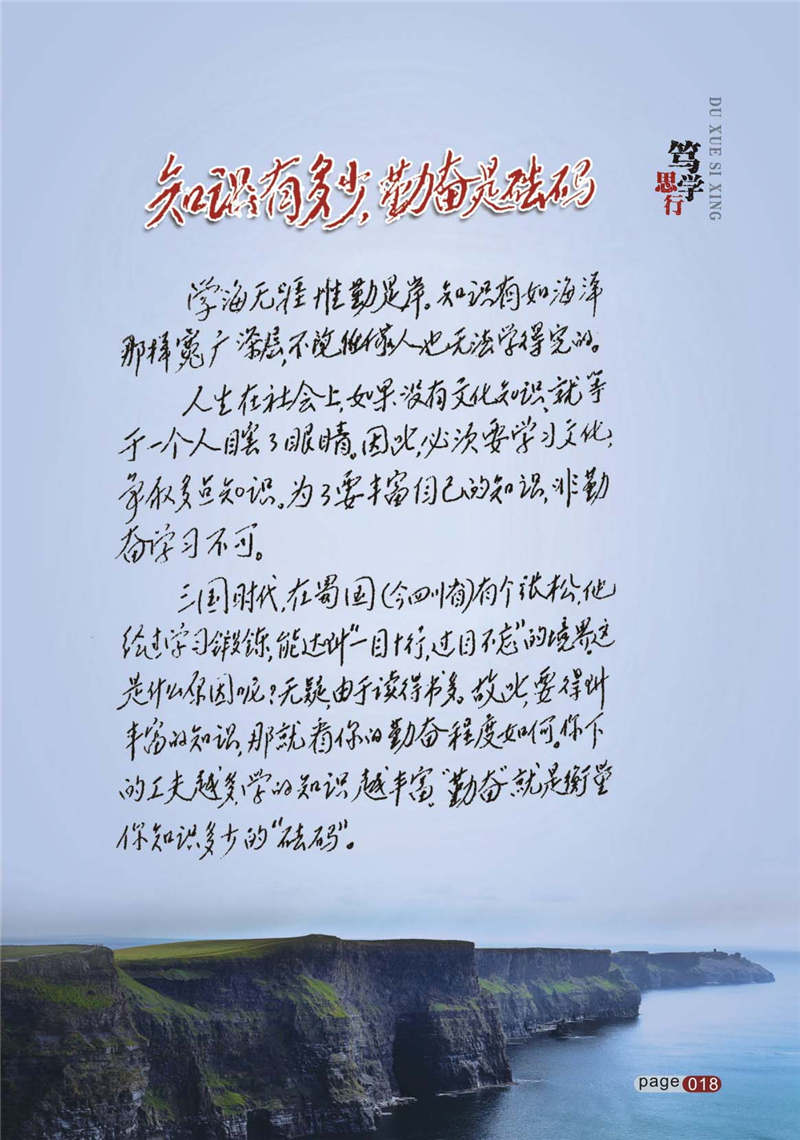 DU XUE SI XING
笃学
思行
知识有多少,勤奋是砝码
学海无涯惟勤是岸。知识有如海洋
那样宽广深层,不览任何人也无法学得完的。
人生在社会上,如果没有文化知识,就等
于一个人瞎了眼睛。因此,必须要学习文化,
争取多点知识。为了要丰富自己的知识,非勤
奋学习不可。
三国时代,在蜀国(今四川省)有个张松,他
经过学习锻鍊,能达到“一目十行,过目不忘”的境界这
是什么原因呢?无疑,由于读得书多。故此,要得到
丰富的知识,那就看你的勤奋程度如何。你下
的工夫越多,学的知识越丰富。“勤奋”就是衡量
你知识多少的“砝码”。
page 018